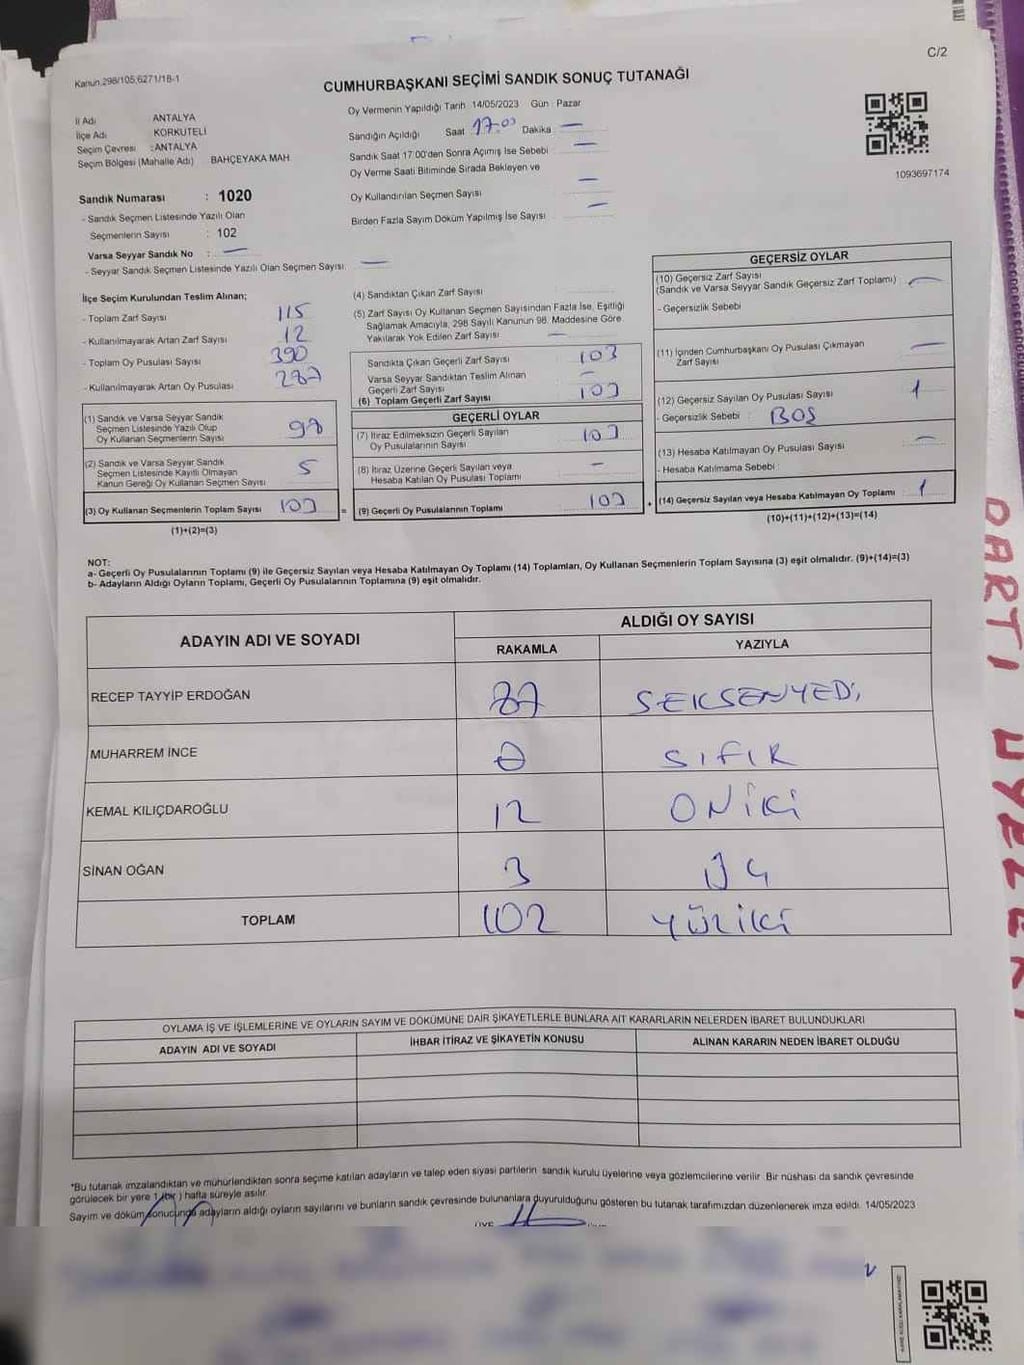 C/2
Kanun.298/105,6271/18-1
CUMHURBAŞKANI SEÇİMİ SANDIK SONUÇ TUTANAĞI
İl Adı ANTALYA
İlçe Adı KORKUTELİ
Seçim Çevresi :ANTALYA
Seçim Bölgesi (Mahalle Adı) BAHÇEYAKA MAH.
Oy Vermenin Yapıldığı Tarih 14/05/2023 Gün : Pazar
Sandığın Açıldığı Saat 17.00 Dakika : —
Sandık Saat 17:00'den Sonra Açılmış İse Sebebi —
Oy Verme Saati Bitiminde Sırada Bekleyen ve
Oy Kullandırılan Seçmen Sayısı —
Birden Fazla Sayım Döküm Yapılmış İse Sayısı —
1093697174
Sandık Numarası : 1020
- Sandık Seçmen Listesinde Yazılı Olan
Seçmenlerin Sayısı : 102
Varsa Seyyar Sandık No : —
- Seyyar Sandık Seçmen Listesinde Yazılı Olan Seçmen Sayısı: —
İlçe Seçim Kurulundan Teslim Alınan;
- Toplam Zarf Sayısı 115
- Kullanılmayarak Artan Zarf Sayısı 12
- Toplam Oy Pusulası Sayısı 390
- Kullanılmayarak Artan Oy Pusulası 287
(1) Sandık ve Varsa Seyyar Sandık
Seçmen Listesinde Yazılı Olup
Oy Kullanan Seçmenlerin Sayısı 98
(2) Sandık ve Varsa Seyyar Sandık
Seçmen Listesinde Kayıtlı Olmayan
Kanun Gereği Oy Kullanan Seçmen Sayısı 5
(3) Oy Kullanan Seçmenlerin Toplam Sayısı 103 =
(1)+(2)=(3)
(4) Sandıktan Çıkan Zarf Sayısı
(5) Zarf Sayısı Oy Kullanan Seçmen Sayısından Fazla İse, Eşitliği
Sağlamak Amacıyla, 298 Sayılı Kanunun 98. Maddesine Göre
Yakılarak Yok Edilen Zarf Sayısı —
Sandıkta Çıkan Geçerli Zarf Sayısı 103
Varsa Seyyar Sandıktan Teslim Alınan
Geçerli Zarf Sayısı —
(6) Toplam Geçerli Zarf Sayısı 103
GEÇERLİ OYLAR
(7) İtiraz Edilmeksizin Geçerli Sayılan
Oy Pusulalarının Sayısı 103
(8) İtiraz Üzerine Geçerli Sayılan veya
Hesaba Katılan Oy Pusulası Toplamı —
(9) Geçerli Oy Pusulalarının Toplamı 103 +
GEÇERSİZ OYLAR
(10) Geçersiz Zarf Sayısı
(Sandık ve Varsa Seyyar Sandık Geçersiz Zarf Toplamı) —
- Geçersizlik Sebebi
(11) İçinden Cumhurbaşkanı Oy Pusulası Çıkmayan
Zarf Sayısı —
(12) Geçersiz Sayılan Oy Pusulası Sayısı 1
- Geçersizlik Sebebi : BOŞ
(13) Hesaba Katılmayan Oy Pusulası Sayısı —
- Hesaba Katılmama Sebebi :
(14) Geçersiz Sayılan veya Hesaba Katılmayan Oy Toplamı 1
(10)+(11)+(12)+(13)=(14)
NOT:
a- Geçerli Oy Pusulalarının Toplamı (9) ile Geçersiz Sayılan veya Hesaba Katılmayan Oy Toplamı (14) Toplamları, Oy Kullanan Seçmenlerin Toplam Sayısına (3) eşit olmalıdır. (9)+(14)=(3)
b- Adayların Aldığı Oyların Toplamı, Geçerli Oy Pusulalarının Toplamına (9) eşit olmalıdır.
ADAYIN ADI VE SOYADI ALDIĞI OY SAYISI
RAKAMLA YAZIYLA
RECEP TAYYİP ERDOĞAN 87 SEKSENYEDİ
MUHARREM İNCE 0 SIFIR
KEMAL KILIÇDAROĞLU 12 ONİKİ
SİNAN OĞAN 3 ÜÇ
TOPLAM 102 YÜZİKİ
OYLAMA İŞ VE İŞLEMLERİNE VE OYLARIN SAYIM VE DÖKÜMÜNE DAİR ŞİKAYETLERLE BUNLARA AİT KARARLARIN NELERDEN İBARET BULUNDUKLARI
ADAYIN ADI VE SOYADI İHBAR İTİRAZ VE ŞİKAYETİN KONUSU ALINAN KARARIN NEDEN İBARET OLDUĞU
*Bu tutanak imzalandıktan ve mühürlendikten sonra seçime katılan adayların ve talep eden siyasi partilerin sandık kurulu üyelerine veya gözlemcilerine verilir. Bir nüshası da sandık çevresinde
görülecek bir yere 1 (bir) hafta süreyle asılır.
Sayım ve döküm sonucunda adayların aldığı oyların sayılarını ve bunların sandık çevresinde bulunanlara duyurulduğunu gösteren bu tutanak tarafımızdan düzenlenerek imza edildi. 14/05/2023
ÜYE
PARTİ ÜYELERİ